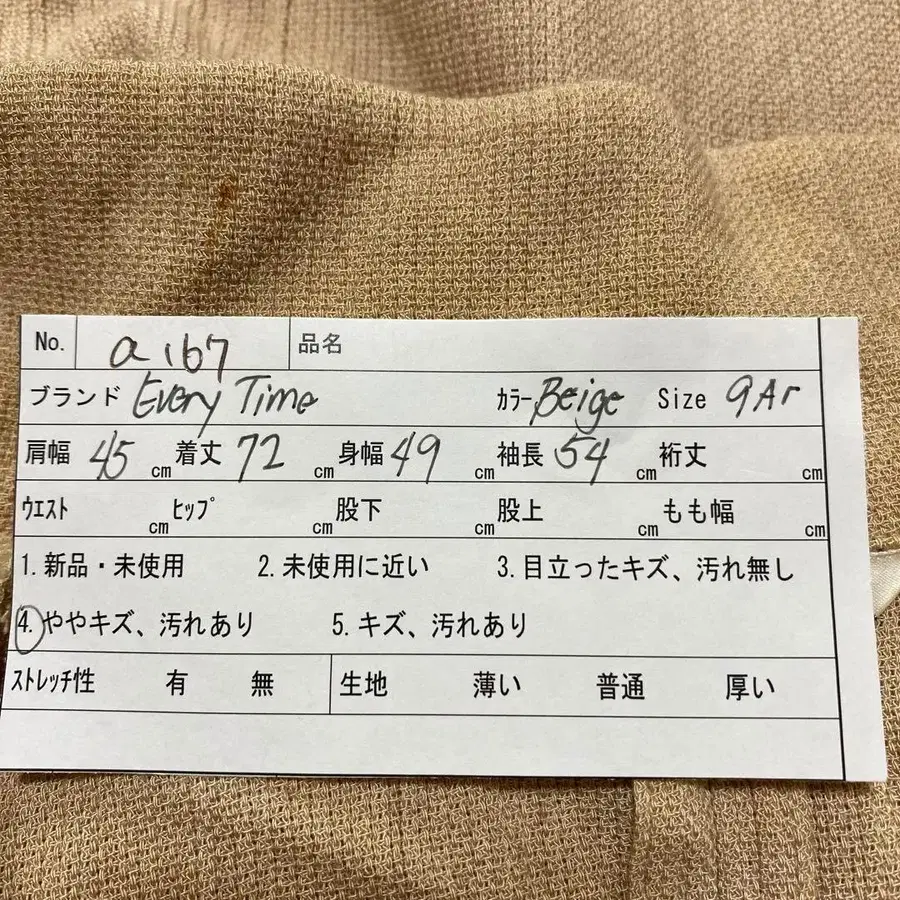 No. a167 品名
ブランド Every Time カラー Beige Size 9Ar
肩幅 45 cm 着丈 72 cm 身幅 49 cm 袖長 54 cm 裄丈 cm
ウエスト cm ヒップ cm 股下 cm 股上 cm もも幅 cm
1. 新品・未使用 2. 未使用に近い 3. 目立ったキズ、汚れ無し
4. ややキズ、汚れあり 5. キズ、汚れあり
ストレッチ性 有 無 生地 薄い 普通 厚い